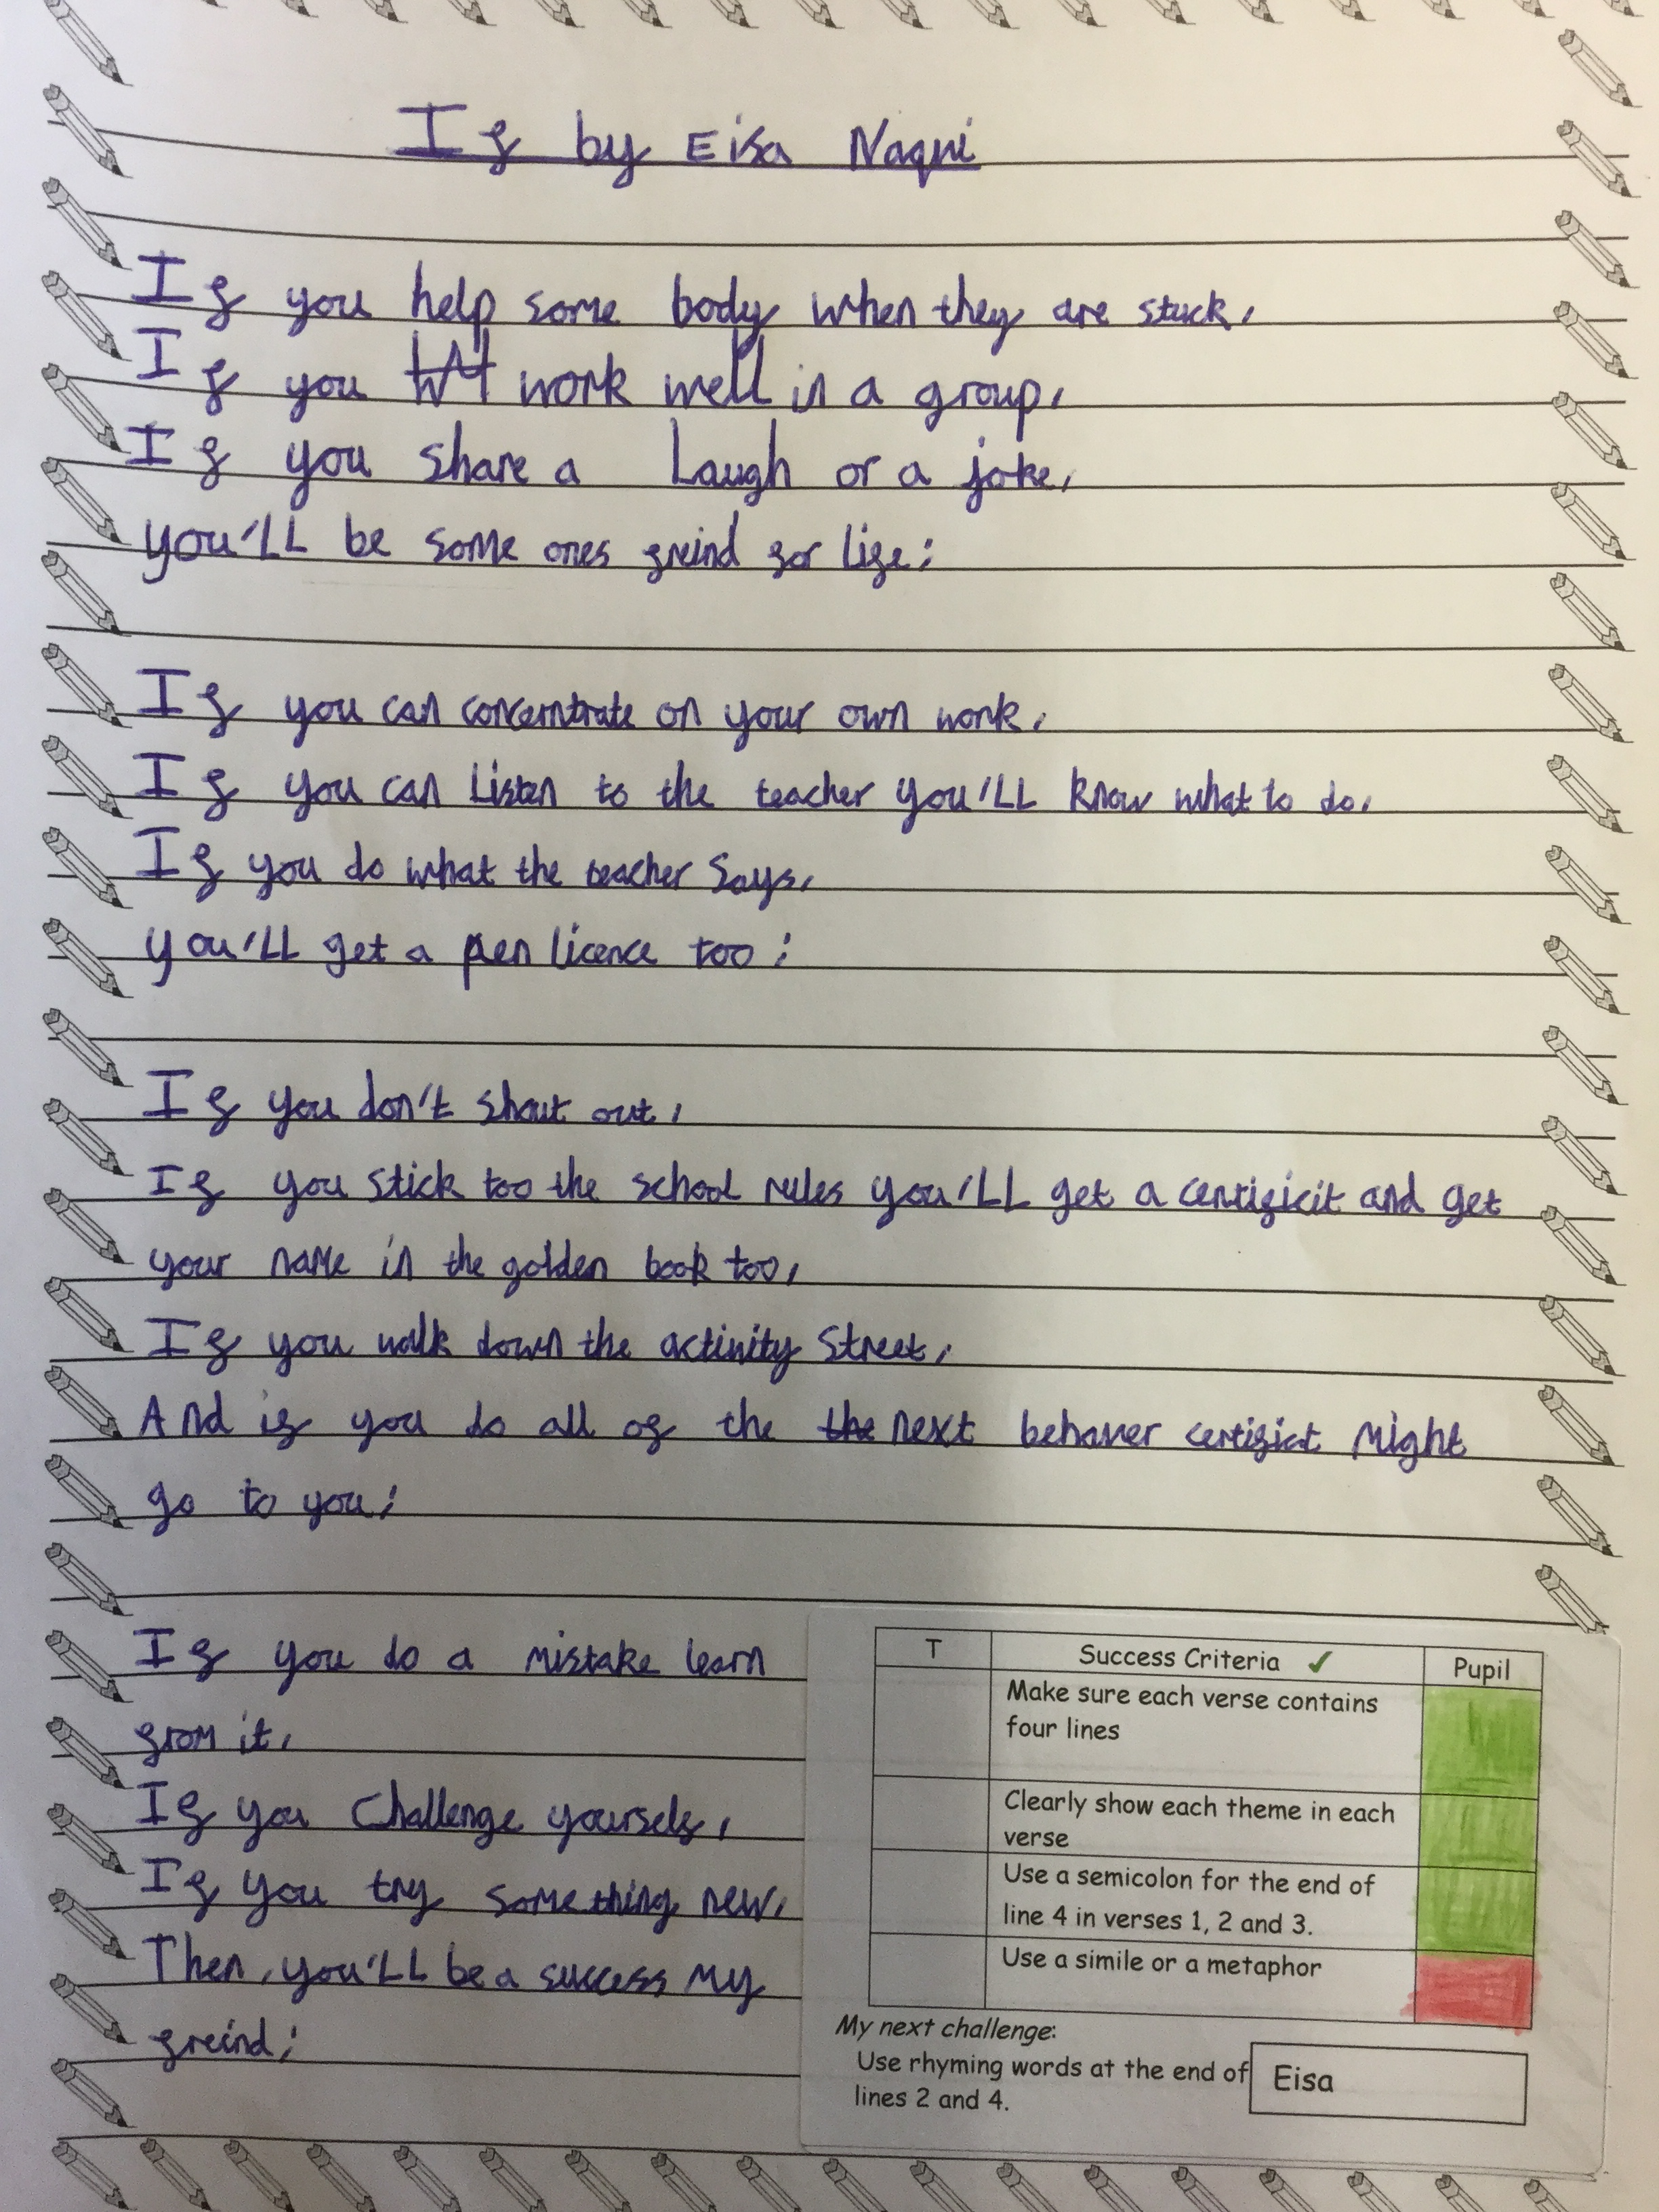 If by Eisa Naqvi
If you help some body when they are stuck,
If you work well in a group,
If you share a Laugh or a joke,
you'LL be some ones freind for life;
If you can concerntrate on your own work,
If you can Listen to the teacher you'LL know what to do,
If you do what the teacher Says,
you'LL get a pen licence too;
If you don't shout out,
If you stick too the school rules you'LL get a certificit and get
your name in the golden book too,
If you walk down the activity Street,
And if you do all of the the next behaver certifict might
go to you;
If you do a mistake learn
from it,
If you Challenge yourself,
If you try something new,
Then, you'LL be a success my
freind;
T Success Criteria ✓ Pupil
Make sure each verse contains
four lines
Clearly show each theme in each
verse
Use a semicolon for the end of
line 4 in verses 1, 2 and 3.
Use a simile or a metaphor
My next challenge:
Use rhyming words at the end of
lines 2 and 4.
Eisa